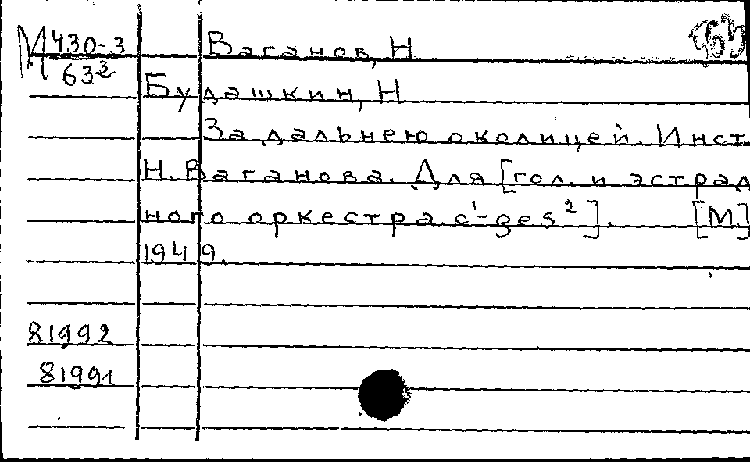 М 430-3 Ваганов, Н
63² Будашкин, Н
За дальнею околицей. Инст.
Н. Ваганова. Для [гол. и эстрад
ного оркестра c¹-ges²]. [М]
1949.
81992
81991